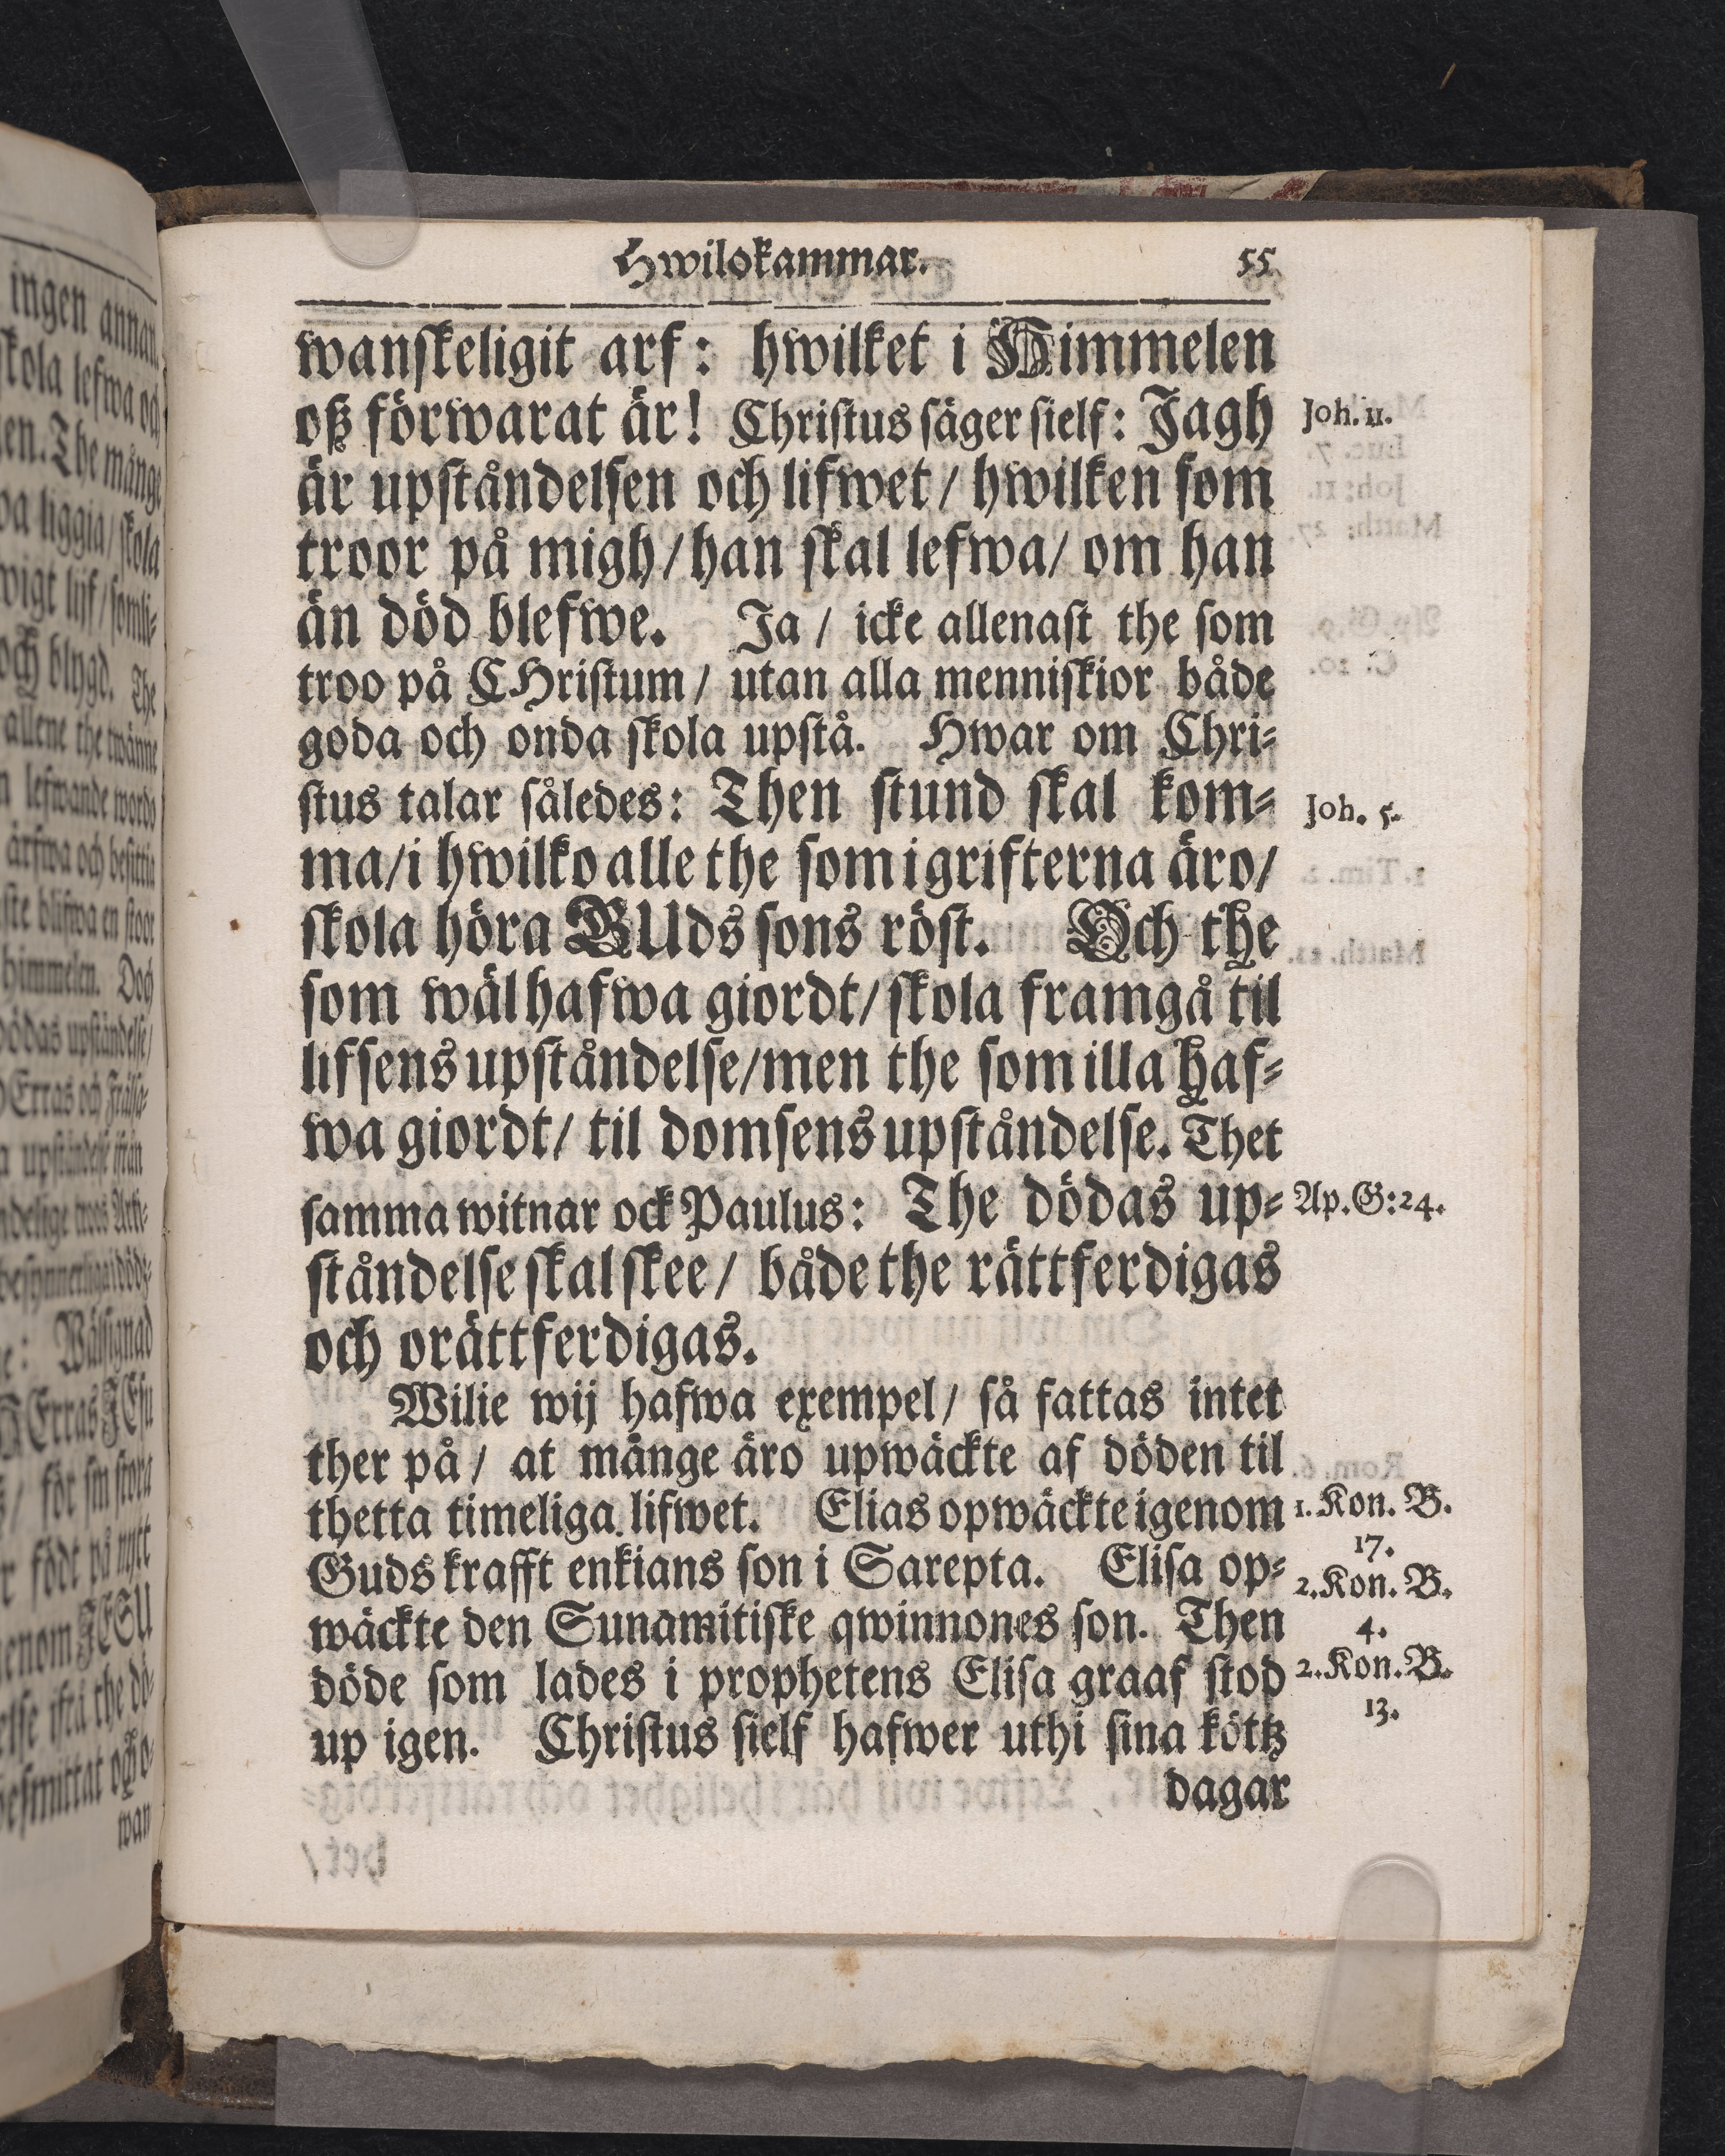 Hwilokammar. 55
wanskeligit arf: hwilket i Himmelen
oß förwarat är! Christus säger sielf: Jagh
Joh. 11.
är upståndelsen och lifwet / hwilken som
troor på migh / han skal lefwa / om han
än död blefwe. Ja / icke allenast the som
troo på CHristum / utan alla menniskior både
goda och onda skola upstå. Hwar om Chri-
stus talar således: Then stund skal kom-
Joh. 5.
ma / i hwilko alle the som i grifterna äro /
skola höra GUds sons röst. Och the
som wäl hafwa giordt / skola framgå til
lifsens upståndelse / men the som illa haf-
wa giordt / til domsens upståndelse. Thet
samma witnar ock Paulus: The dödas up-
Ap. G: 24.
ståndelse skal skee / både the rättferdigas
och orättferdigas.
Wilie wij hafwa exempel / så fattas intet
ther på / at månge äro upwäckte af döden til
thetta timeliga lifwet. Elias opwäckte igenom
1. Kon. B.
17.
Guds krafft enkians son i Sarepta. Elisa op-
2. Kon. B.
4.
wäckte den Sunamitiske qwinnones son. Then
döde som lades i prophetens Elisa graaf stod
2. Kon. B.
13.
up igen. Christus sielf hafwer uthi sina köttz
dagar
ingen annan
skola lefwa och
en. The månge
liggia / skola
wigt lijf / somli-
och blygd. The
allene the twänne
lefwande words
ärfwa och besittia
blifwa en stoor
himmelen. Doch
dödas upståndelse /
Wälsignad
för sin stora
födt på nytt
genom JESU
wan